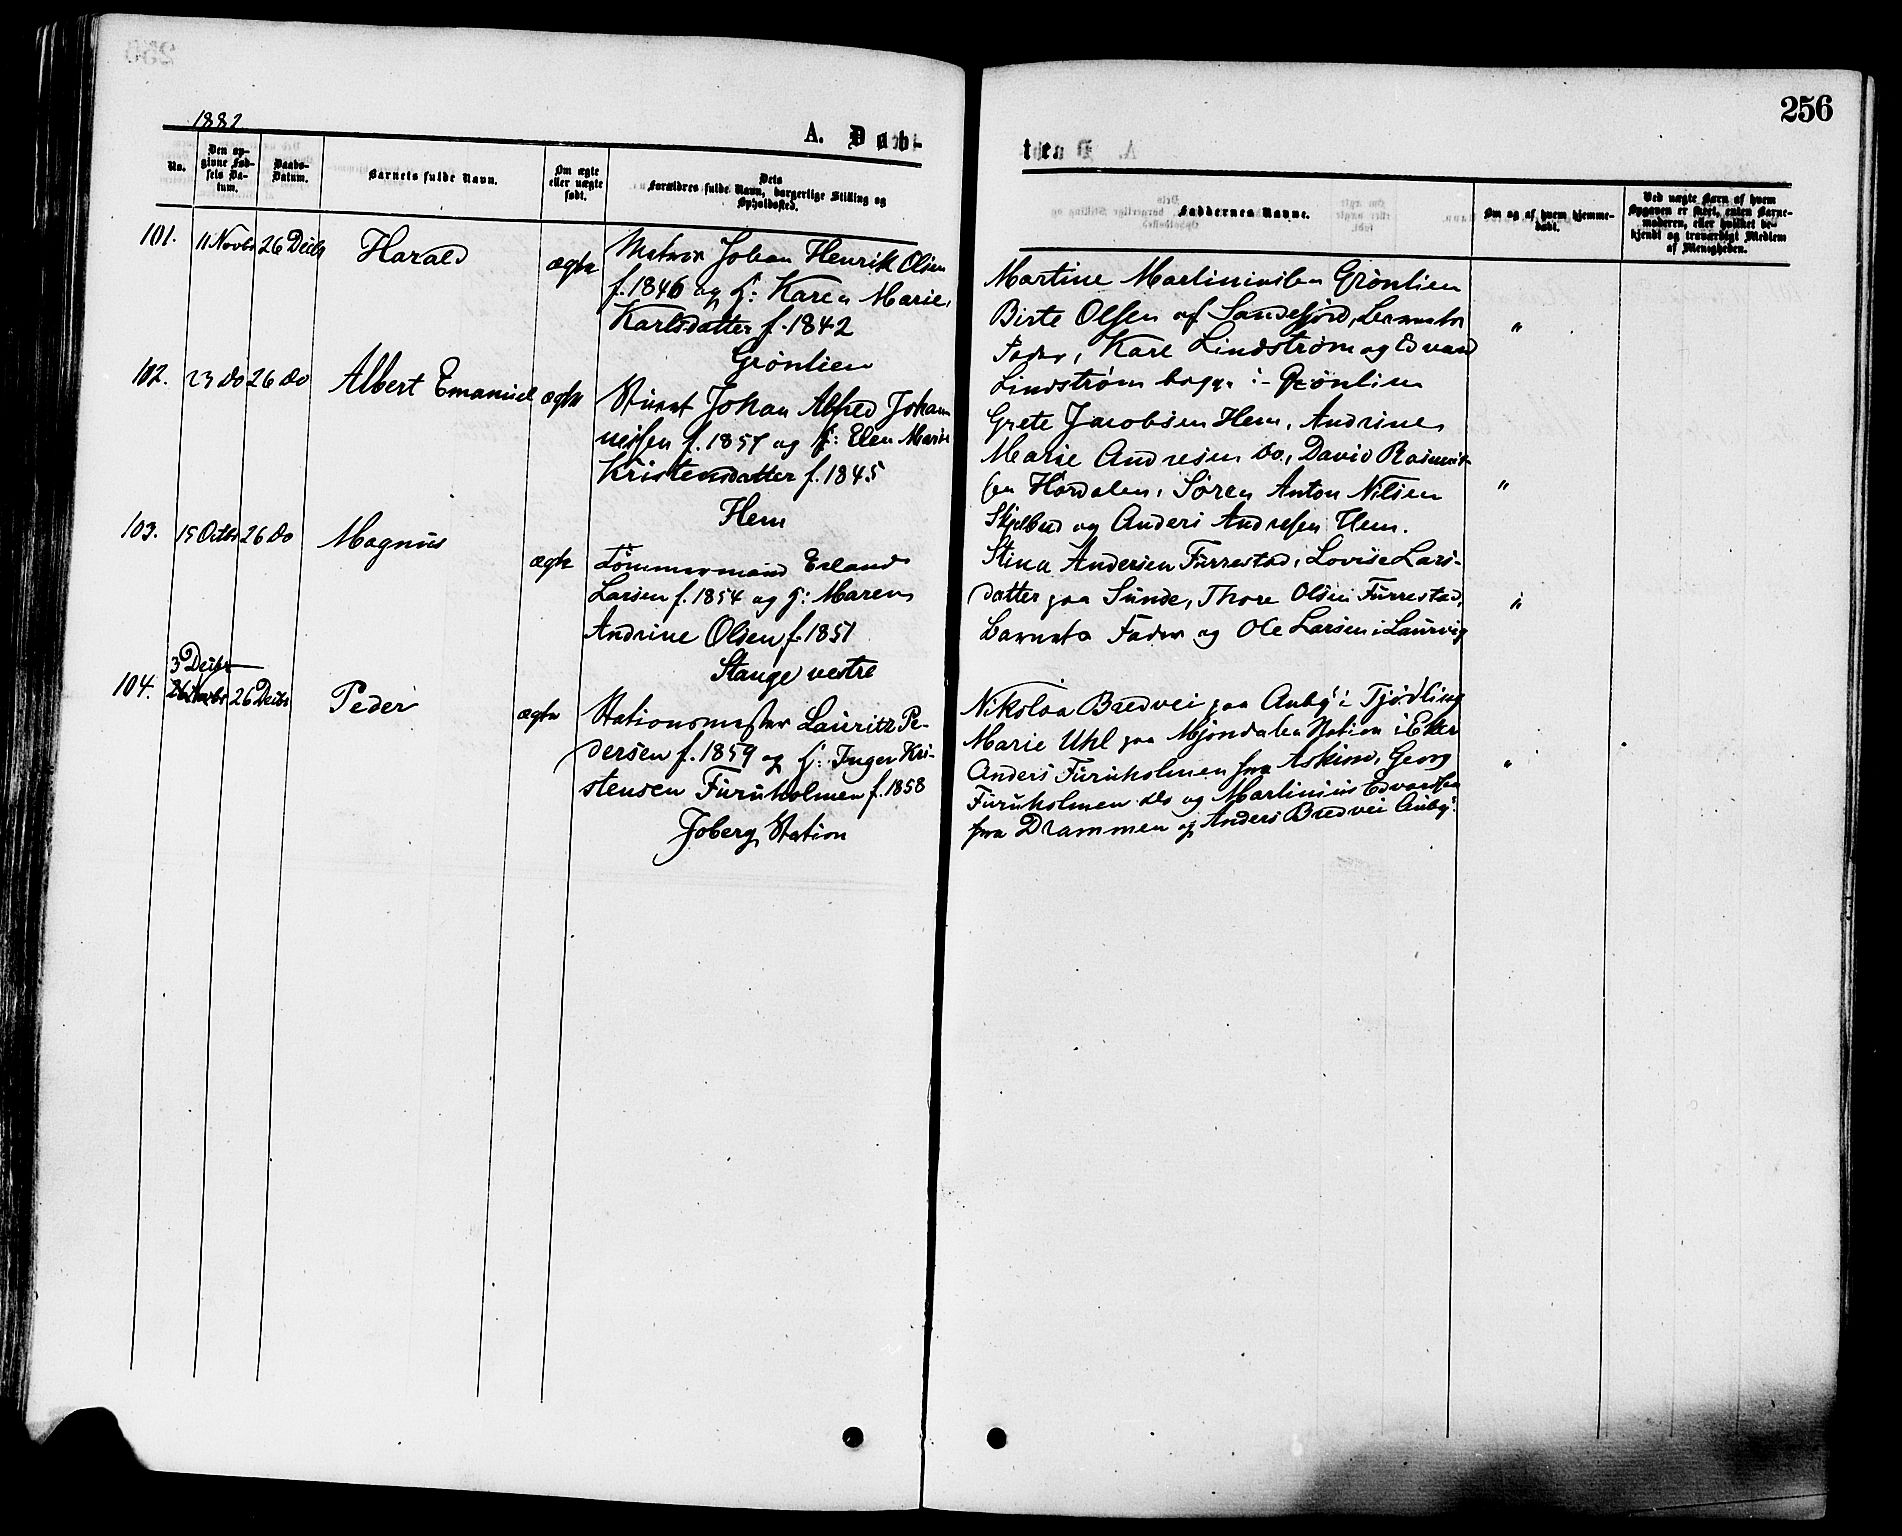 256
1882
A. Døb-
ten
No.
Den op-
givne Fød-
sels Da-
tum.
Daabs-
Datum.
Barnets fulde Navn.
Om ægte
eller uægte
født.
Dets
Forældres fulde Navn, borgerlige Stilling og
Opholdssted.
Faddernes Navne.
Om og af hvem hjemme-
døbt.
Ved uægte Barn af hvem
Opgaven er skeet, enten Barne-
moderen, eller hvilket be-
kjendt og troværdigt Medlem
af Menigheden.
101.
11 Novbr
26 Decbr
Harald
ægte
Matros Johan Henrik Olsen
f. 1846 og H: Karen Marie
Karlsdatter f. 1842
Grönlien
Martine Grönlien
Birte Olsen af Sandefjord, Barnets
Fader, Karl Lindström og Edvard
Lindström begge i Grönlien
"
102.
23 do
26 do
Albert Emanuel
ægte
Johan Alfred Johan
nessen f. 1857 og H: Elen Marie
Kristensdatter f. 1845
Hem
Grete Jacobsen Hem, Andrine
Marie Andresen do, David Rasmus-
sen Hördalen, Sören Anton Nilsen
Skjelbred og Anders Andresen Hem.
"
103.
15 Octbr
26 do
Magnus
ægte
Tömmermand Erland
Larsen f. 1854 og H: Maren
Andrine Olsen f. 1851
Stange vestre
Stina Andersen Furrestad, Lovise Lars-
datter paa Sunde, Thore Olsen Furrestad,
Barnets Fader og Ole Larsen i Laurvig
"
104.
3 Decbr
26 Novbr
26 Decbr
Peder
ægte
Stationsmester Lauritz Pe-
dersen f. 1859 og H: Inger Kri-
stensen Furuholmen f. 1858
Joberg Station
Nikolaa Bredvei paa Auby i Tjödling
Marie Uhl paa Mjöndalen Station i Eker
Anders Furuholmen fra Askim, Georg
Furuholmen do og Martinius Edvardsen
fra Drammen og Anders Bredvei Auby.
"